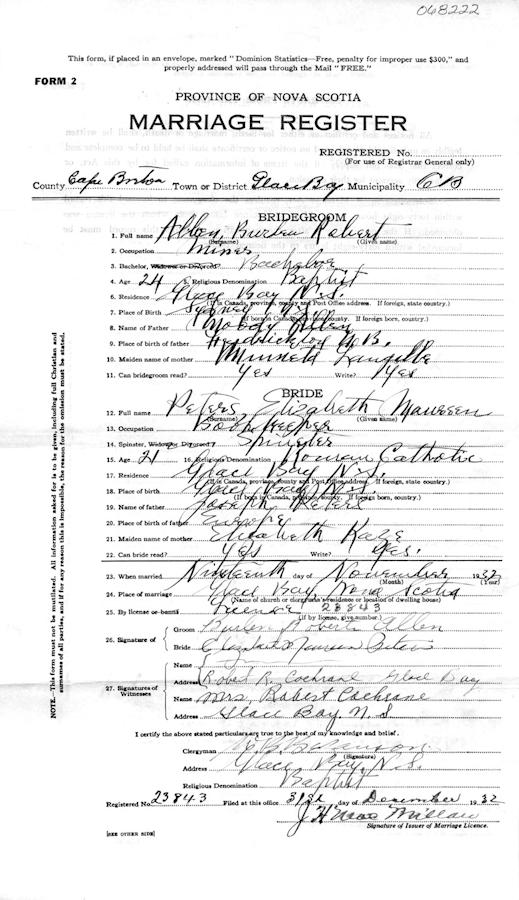 068222
This form, if placed in an envelope, marked "Dominion Statistics—Free, penalty for improper use $300," and
properly addressed will pass through the Mail "FREE."
FORM 2
PROVINCE OF NOVA SCOTIA
MARRIAGE REGISTER
REGISTERED No.
(For use of Registrar General only)
County Cape Breton Town or District Glace Bay Municipality CB
BRIDEGROOM
1. Full name Allen, Burton Robert
(Surname) (Given name)
2. Occupation Miner
3. Bachelor, Widower or Divorced? Bachelor
4. Age 24 5. Religious Denomination Baptist
6. Residence Glace Bay N.S.
(If in Canada, province, county and Post Office address. If foreign, state country.)
7. Place of Birth Sydney N.S.
(If born in Canada, province. If foreign born, country.)
8. Name of Father Moody Allen
9. Place of birth of father Fredrickton N.B.
10. Maiden name of mother Langille
11. Can bridegroom read? Yes Write? Yes
BRIDE
12. Full name Peters, Elizabeth Maureen
(Surname) (Given name)
13. Occupation Book Keeper
14. Spinster, Widow or Divorced? Spinster
15. Age 21 16. Religious Denomination Roman Catholic
17. Residence Glace Bay N.S.
(If in Canada, province, county and Post Office address. If foreign, state country.)
18. Place of birth Glace Bay N.S.
(If born in Canada, province. If foreign born, country.)
19. Name of father Joseph Peters
20. Place of birth of father Europe
21. Maiden name of mother Elizabeth
22. Can bride read? Yes Write? Yes.
23. When married Ninteenth day of November 1932
(Month) (Year)
24. Place of marriage Glace Bay, Nova Scotia
(Name of church or clergyman's residence or location of dwelling house)
25. By license or banns License 23843
(If by license, give number.)
26. Signature of Groom Burton Robert Allen
Bride Elizabeth Maureen Peters
27. Signatures of Witnesses Name
Address Robert R. Cochrane Glace Bay
Name Mrs. Robert Cochrane
Address Glace Bay, N.S.
I certify the above stated particulars are true to the best of my knowledge and belief.
Clergyman
(Signature)
Address Glace Bay, N.S.
Religious Denomination Baptist
Registered No. 23843 Filed at this office 31st day of December 1932
J H Mac Millan
Signature of Issuer of Marriage Licence.
[SEE OTHER SIDE]
NOTE.—This form must not be mutilated. All information asked for is to be given, including full Christian and
surnames of all parties, and if for any reason this is impossible, the reason for the omission must be stated.